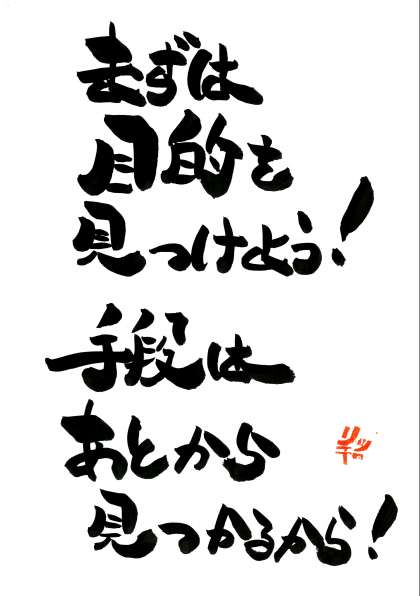 まずは
目的を
見つけよう!
手段は
あとから
見つかるから!